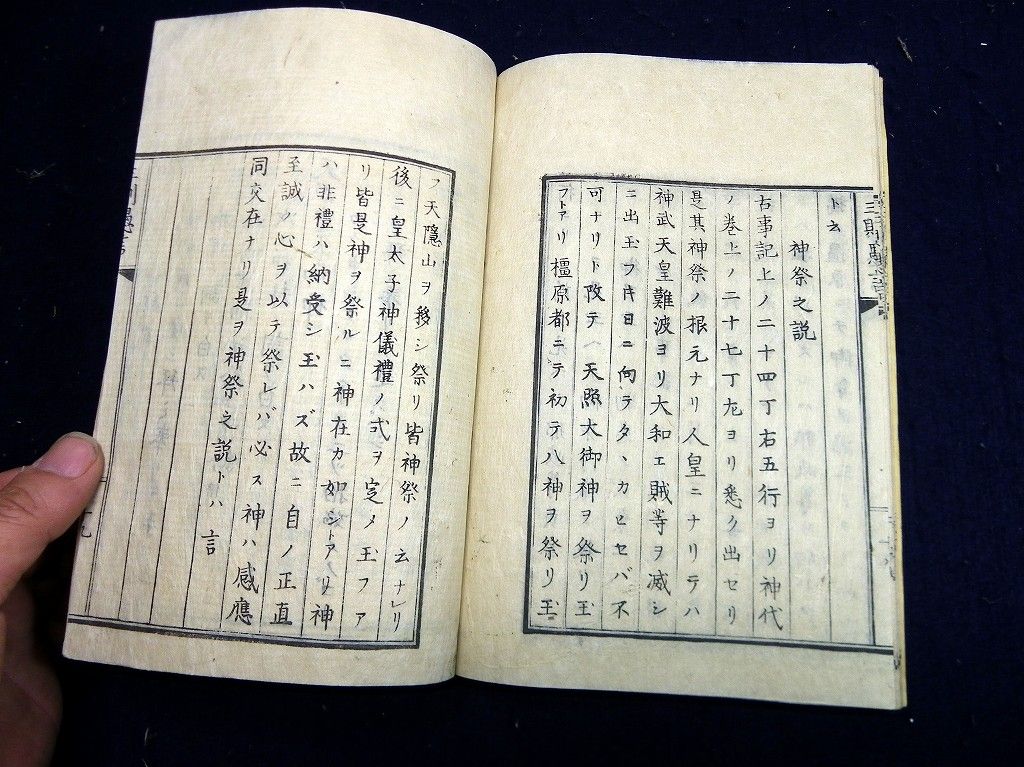 ト云
神祭之説
古事記上ノ二十四丁右五行ヨリ神代
ノ巻上ノ二十七丁尤ヨリ悉ク出セリ
是其神祭ノ根元ナリ人皇ニナリテハ
神武天皇難波ヨリ大和エ賊等ヲ滅シ
ニ出玉フキ日ニ向ラタヽカヒセバ不
可ナリト改テ天照大御神ヲ祭リ玉
フトアリ橿原都ニテ初テ八神ヲ祭リ玉
フ天隱山ヲ移シ祭リ皆神祭ノ云ナレリ
後ニ皇太子神儀禮ノ式ヲ定メ玉フア
リ皆是神ヲ祭ルニ神在カ如シトアリ神
ハ非禮ハ納受シ玉ハズ故ニ自ノ正直
至誠ノ心ヲ以テ祭レバ必ス神ハ感應
同交在ナリ是ヲ神祭之説トハ言